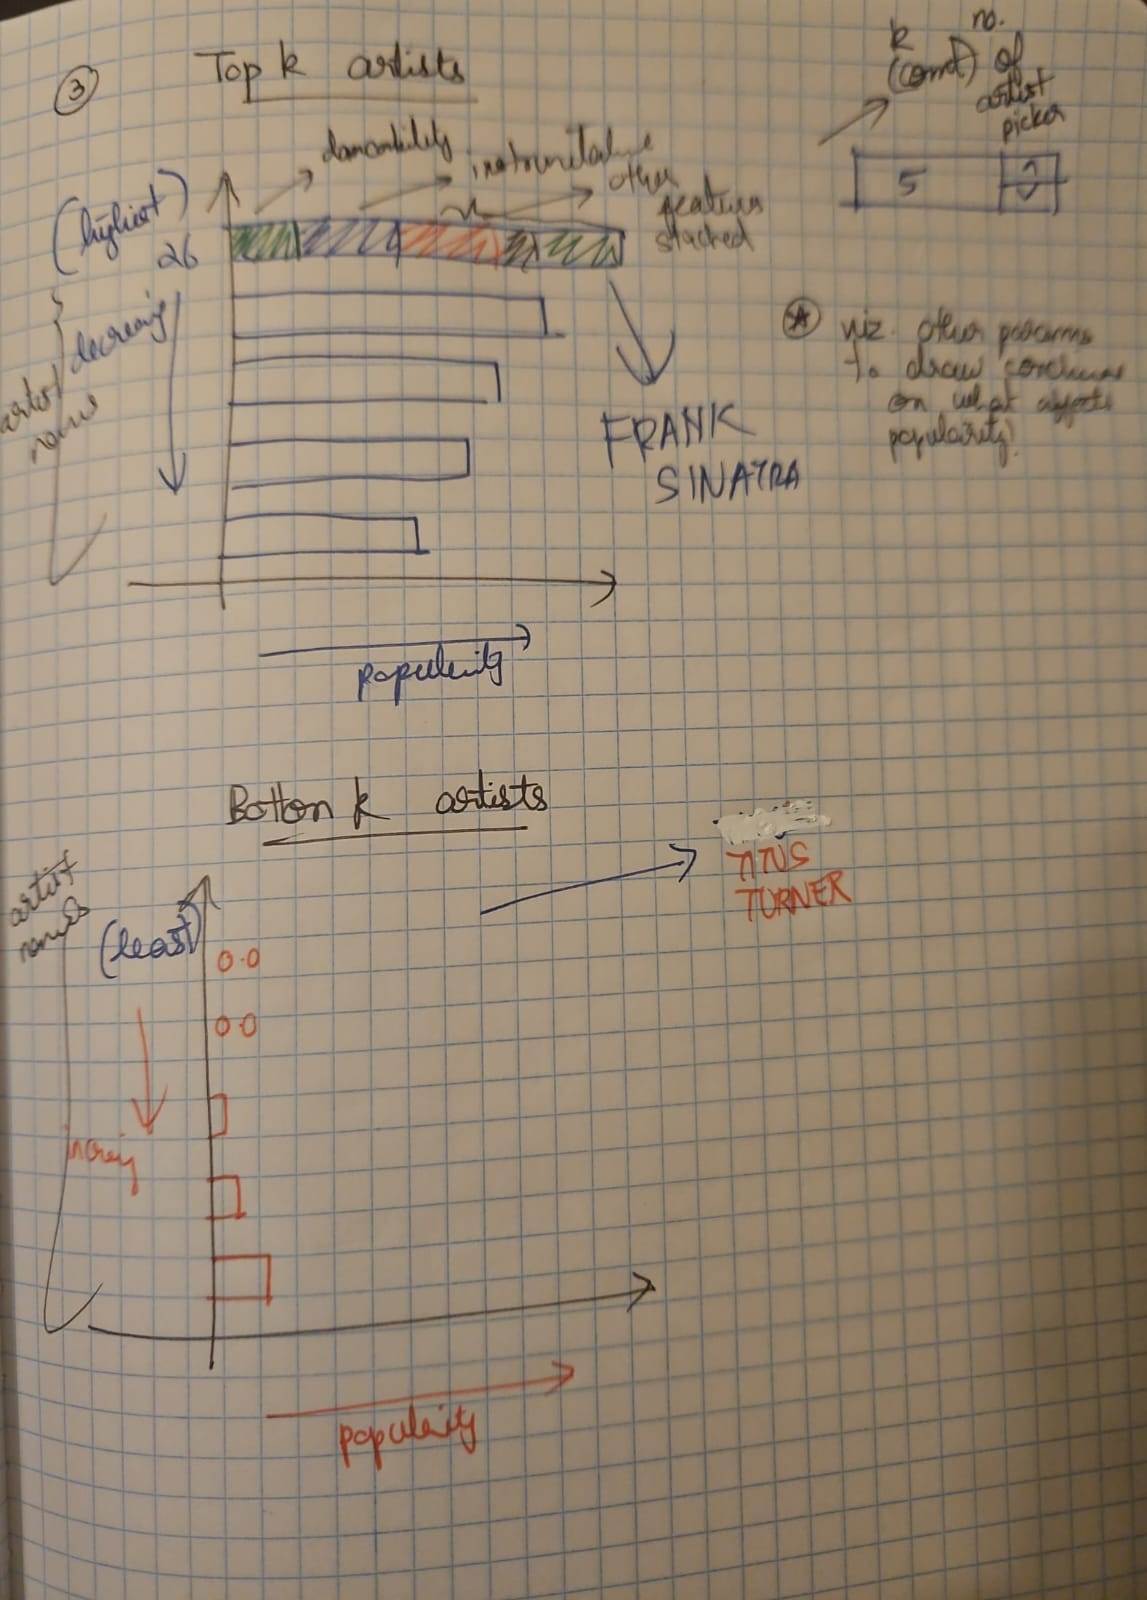 3
Top k artists
k
(count)
no.
of
artist
picker
5
instrumentalne
other
features
stacked
(highest)
26
decreasing
artist
name
FRANK
SINATRA
viz. other params
to draw conclusions
on what affects
popularity!
popularity
Bottom k artists
TITUS
TURNER
artist
names
(least)
0.0
0.0
popularity